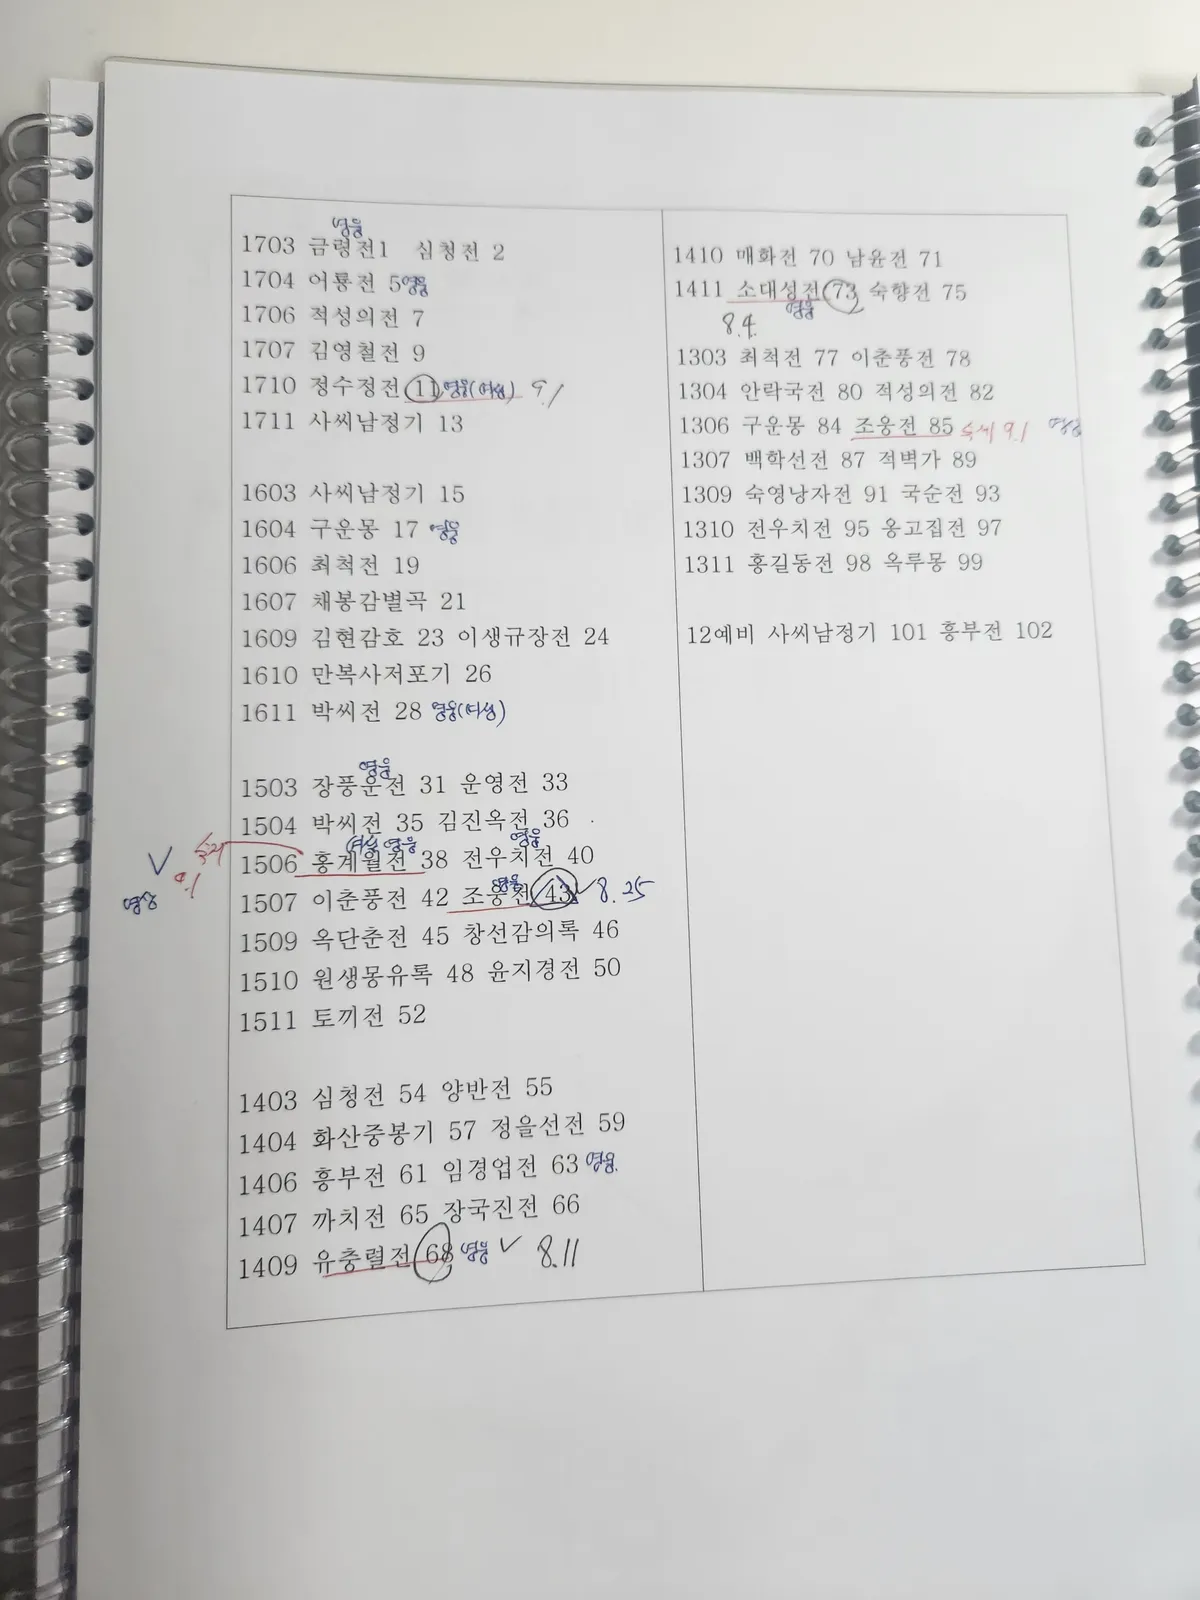 영웅
1703 금령전1 심청전 2
1704 어룡전 5 영웅
1706 적성의전 7
1707 김영철전 9
1710 정수정전 11 영웅(여성) 9.1
1711 사씨남정기 13
1603 사씨남정기 15
1604 구운몽 17 영웅
1606 최척전 19
1607 채봉감별곡 21
1609 김현감호 23 이생규장전 24
1610 만복사저포기 26
1611 박씨전 28 영웅(여성)
영웅
1503 장풍운전 31 운영전 33
1504 박씨전 35 김진옥전 36
여성 영웅 영웅
1506 홍계월전 38 전우치전 40
숙제 9.1
영웅
1507 이춘풍전 42 조웅전 43 8.25
1509 옥단춘전 45 창선감의록 46
1510 원생몽유록 48 윤지경전 50
1511 토끼전 52
1403 심청전 54 양반전 55
1404 화산중봉기 57 정을선전 59
1406 흥부전 61 임경업전 63 영웅
1407 까치전 65 장국진전 66
1409 유충렬전 68 영웅 8.11
1410 매화전 70 남윤전 71
1411 소대성전 73 숙향전 75
8.4. 영웅
1303 최척전 77 이춘풍전 78
1304 안락국전 80 적성의전 82
1306 구운몽 84 조웅전 85 숙제 9.1 영웅
1307 백학선전 87 적벽가 89
1309 숙영낭자전 91 국순전 93
1310 전우치전 95 옹고집전 97
1311 홍길동전 98 옥루몽 99
12예비 사씨남정기 101 흥부전 102